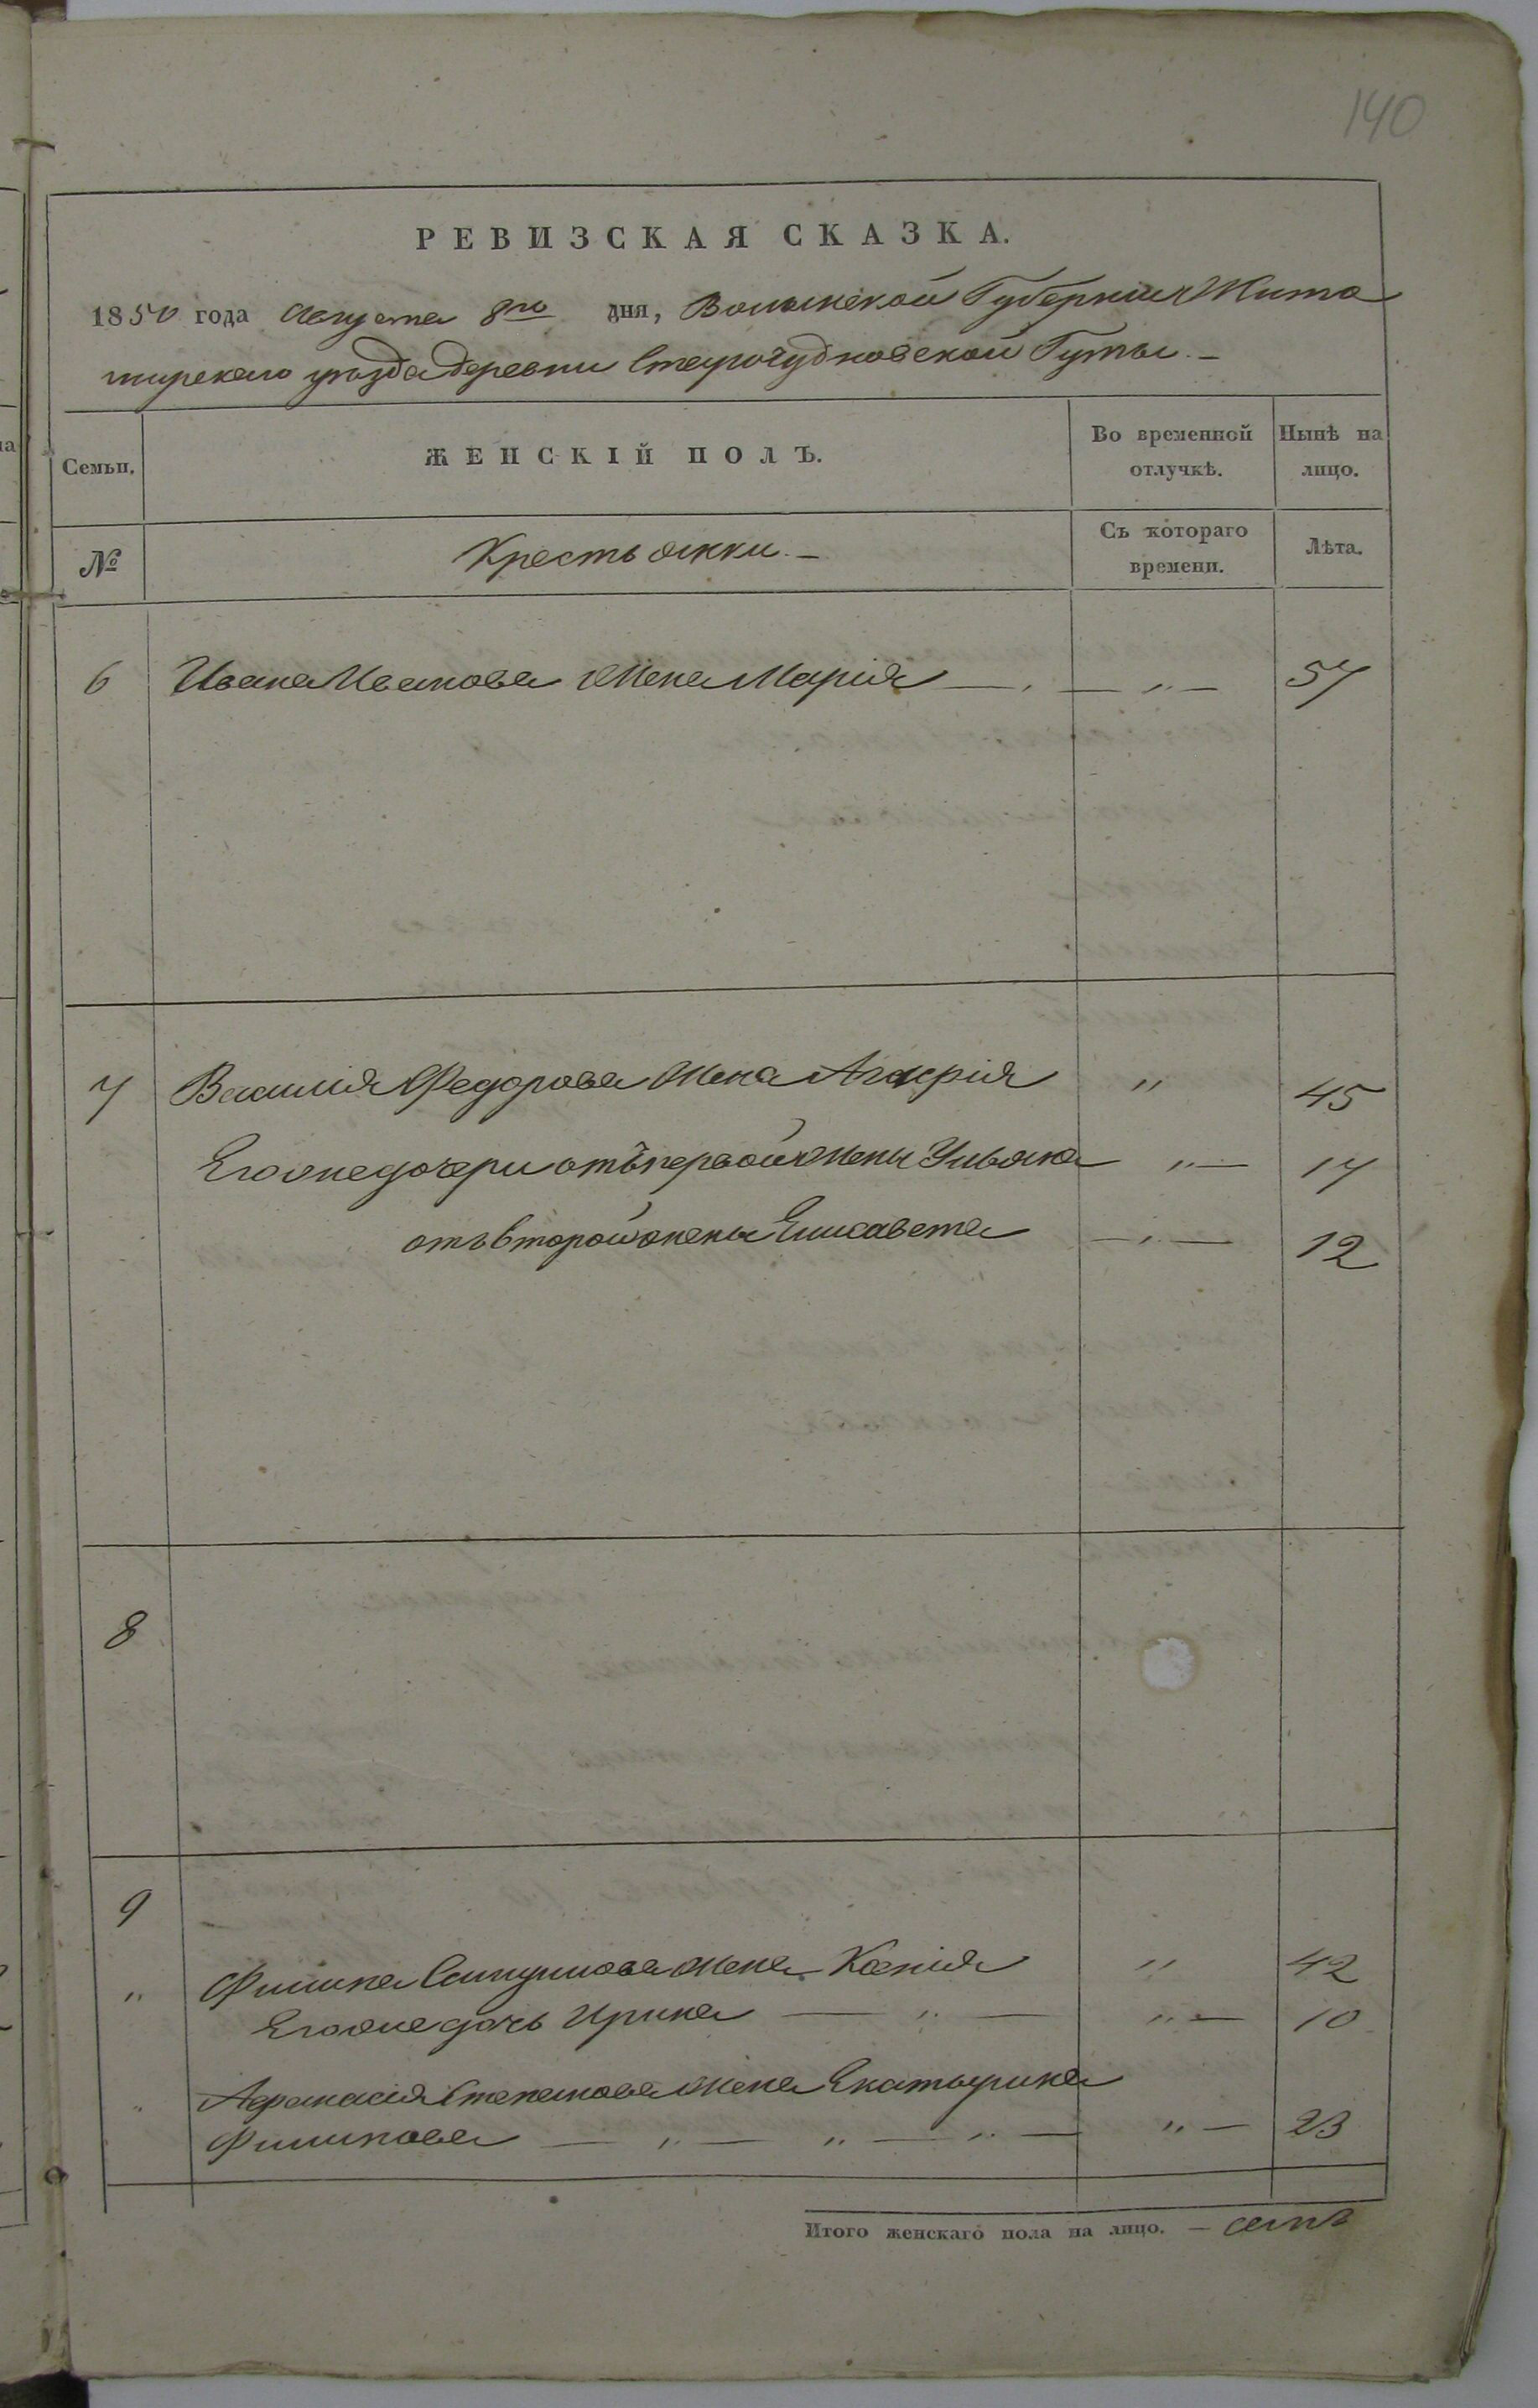 140
РЕВИЗСКАЯ СКАЗКА.
1850 года Августа 8го дня, Волынской Губернии Жито
мирскаго уезда деревни Старочудновской Гуты. —
Семьи. ЖЕНСКІЙ ПОЛЪ. Во временной отлучкѣ. Нынѣ на лицо.
№ Крестьянки. — Съ котораго времени. Лѣта.
6 Ивана Иванова жена Марія — „ — „ — 57
7 Василія Федорова жена Агафія „ 45
Его же дочери отъ первой жены Ульяна „ — 17
отъ второй жены Елисавета — „ — 12
8
9
„ Филипа жена Ксенія „ 42
Его же дочь Ирина — „ — „ — 10
„ Афанасія Степанова жена Екатерина
Филипова — „ — „ — „ — „ — 23
Итого женскаго пола на лицо. — семь